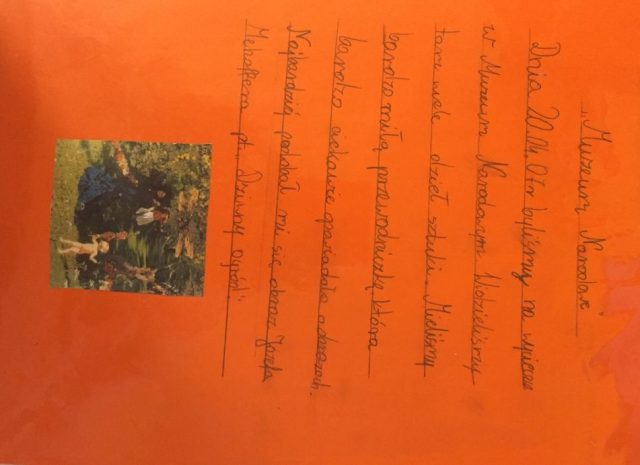 „Muzeum Narodowe”
Dnia byliśmy na wycieczce
w Muzeum Narodowym. Widzieliśmy
tam wiele dzieł sztuki. Mieliśmy
bardzo miłą przewodniczkę, która
bardzo ciekawie opowiadała o obrazach.
Najbardziej podobał mi się obraz Józefa
Mehoffera pt. „Dziwny ogród”.